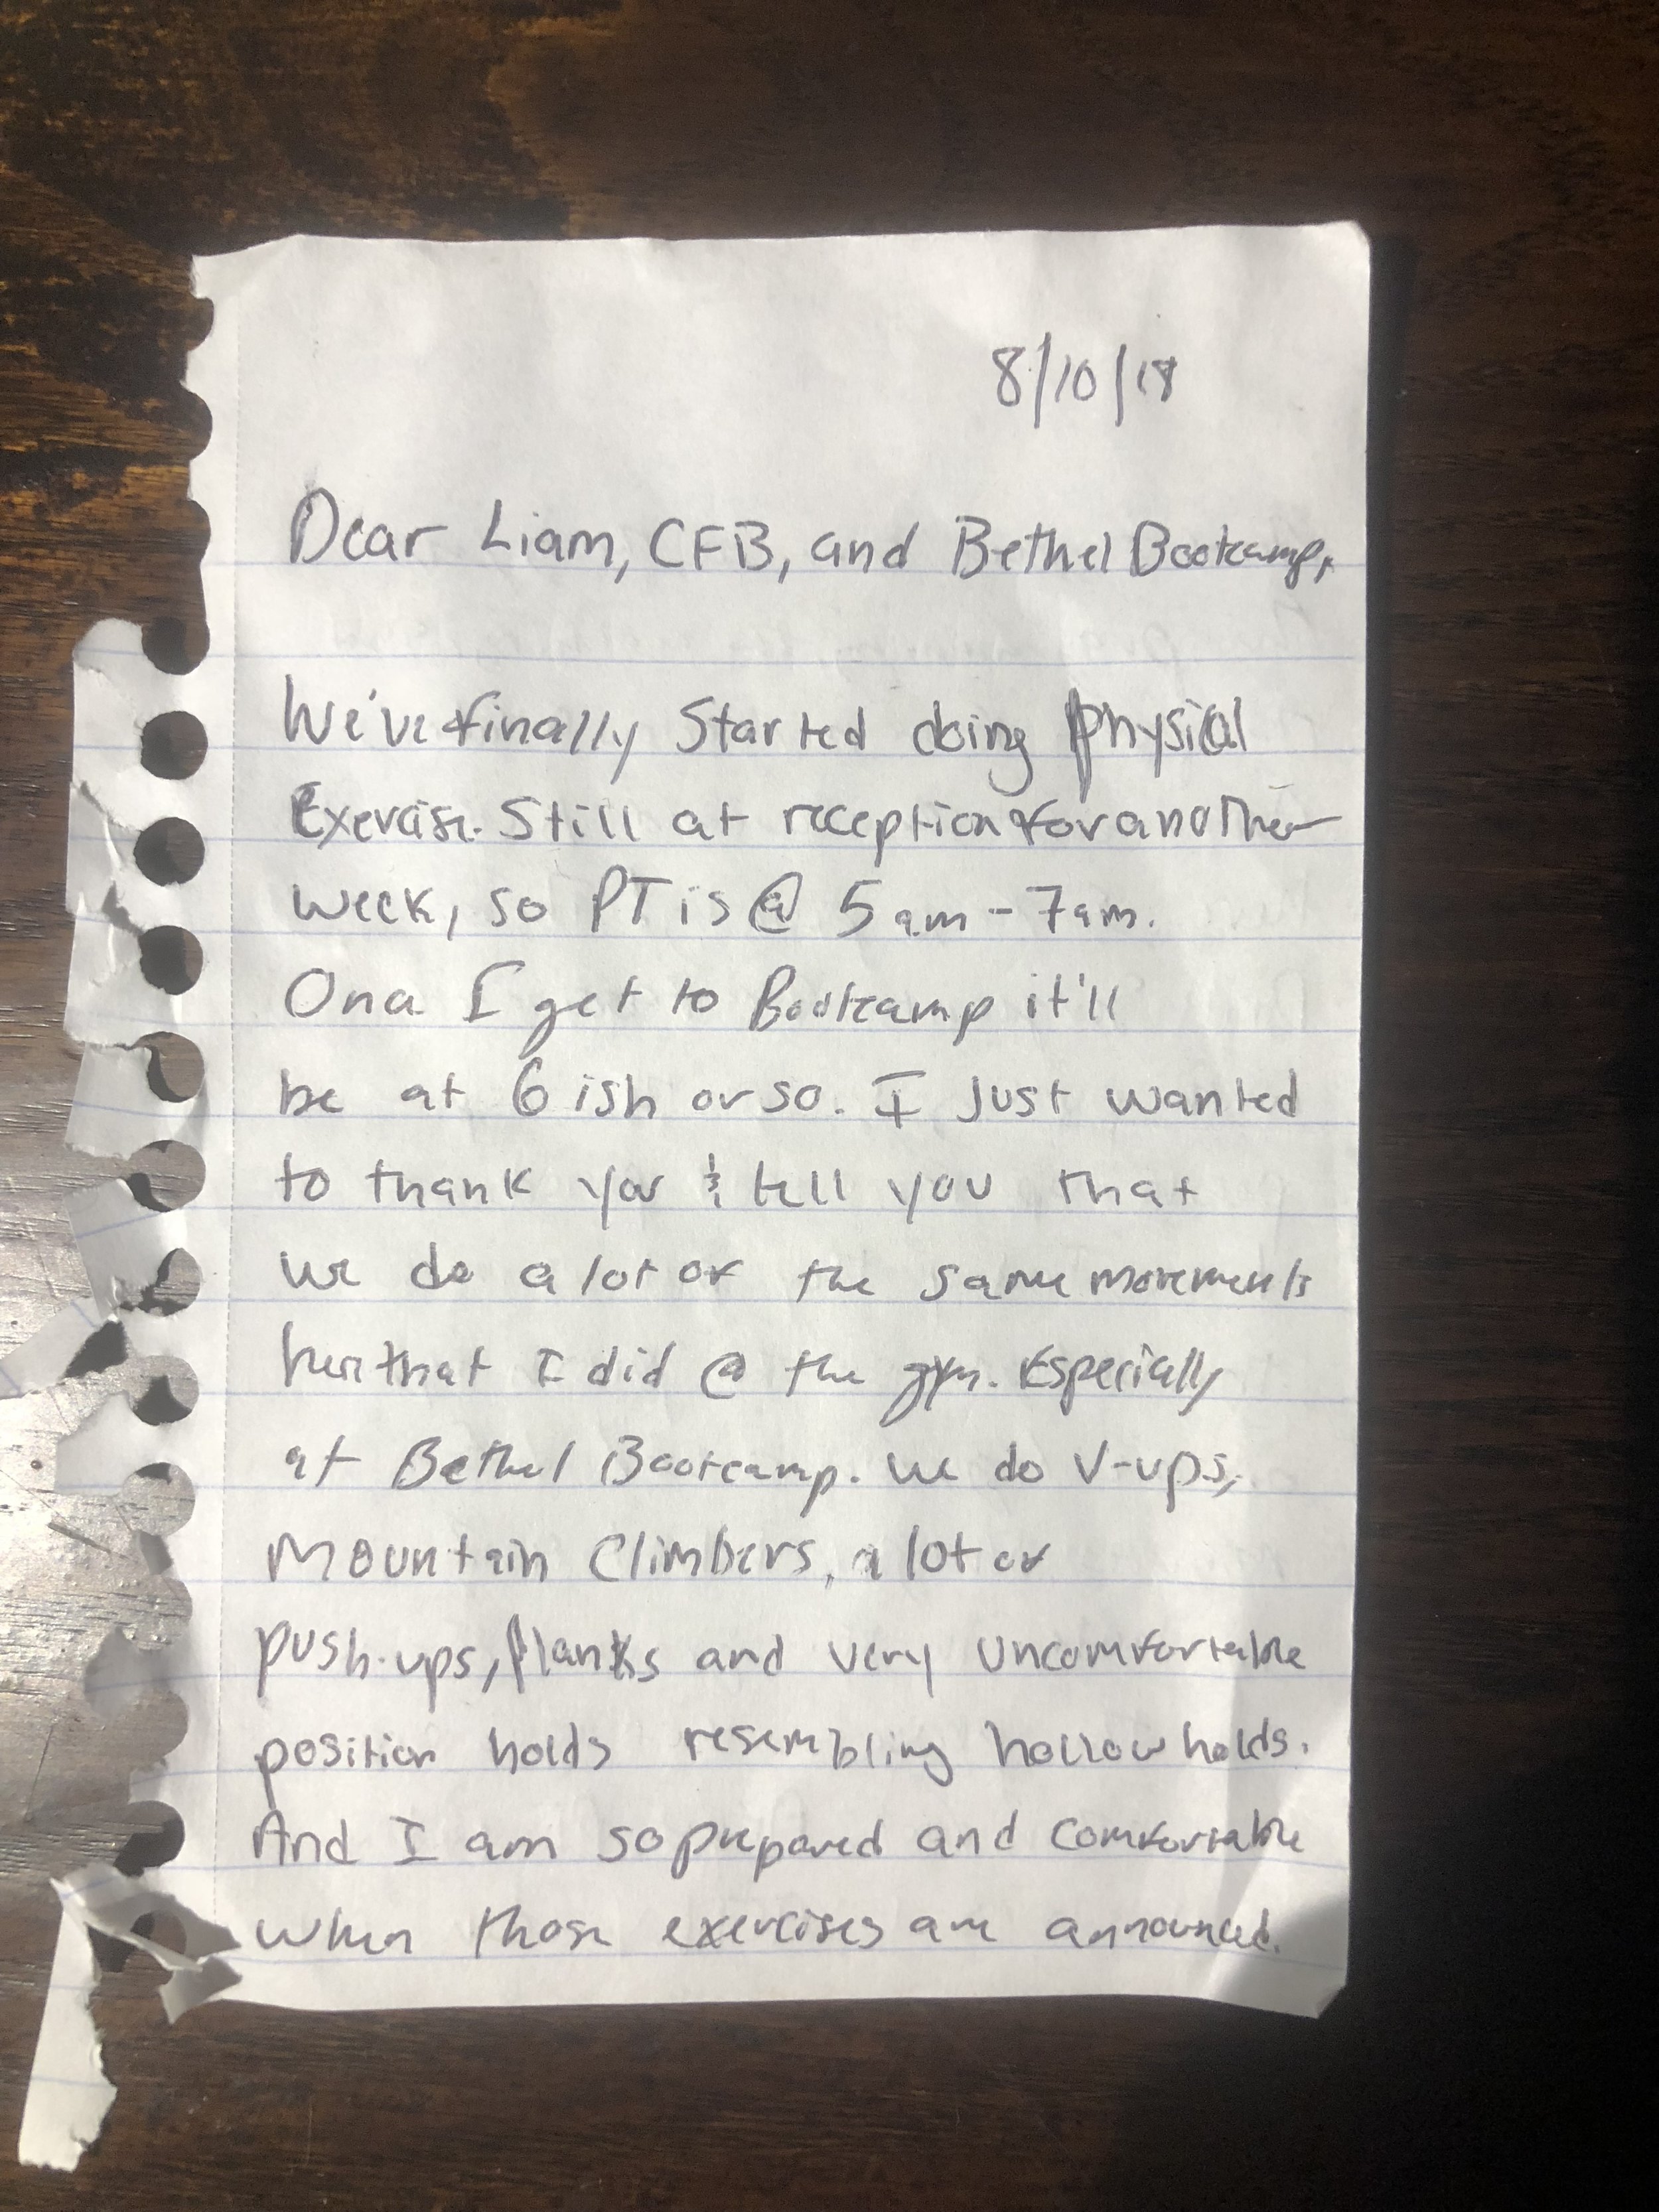 8/10/18
Dear Liam, CFB, and Bethel Bootcamp,
We've finally started doing physical
Exercise. Still at reception for another
week, so PT is @ 5am - 7am.
Once I get to Bootcamp it'll
be at 6 ish or so. I just wanted
to thank you & tell you that
we do a lot of the same movements
here that I did @ the gym. Especially
at Bethel Bootcamp. We do V-ups,
Mountain Climbers, a lot of
push-ups, planks and very uncomfortable
position holds resembling hollow holds.
And I am so prepared and comfortable
when those exercises are announced.